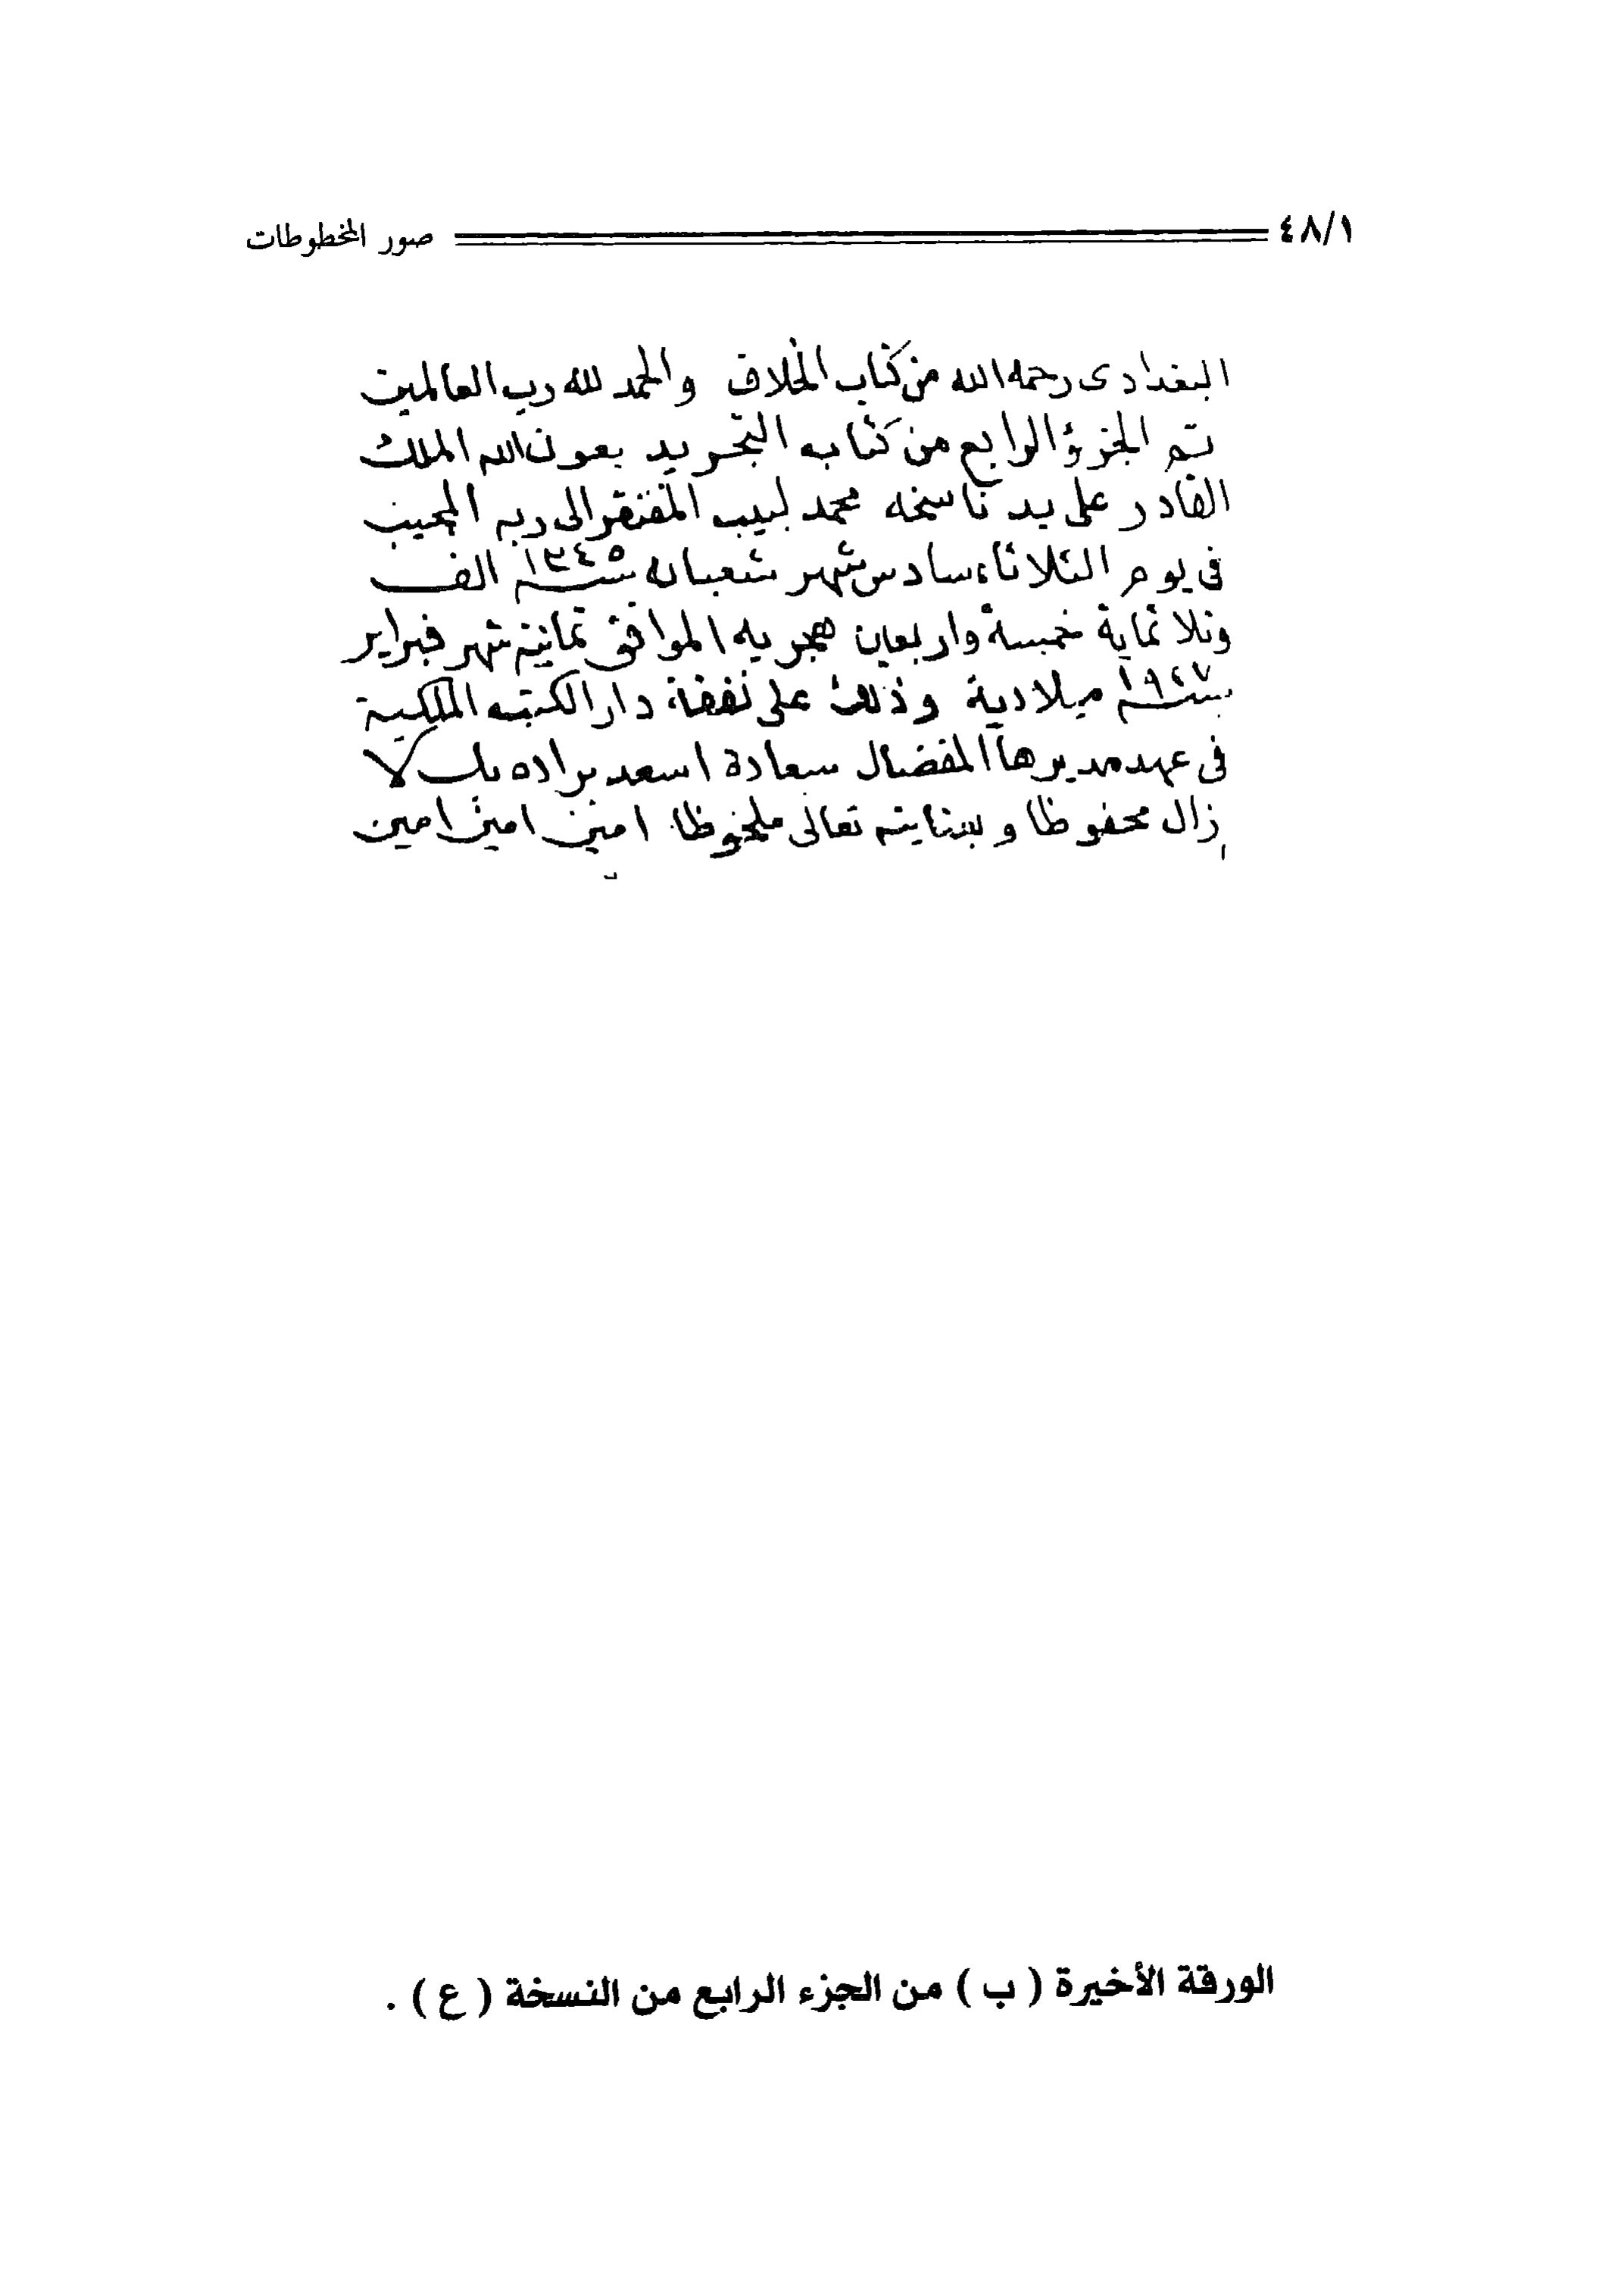 ٤٨/١ صور المخطوطات
البغدادى رحمه الله من كتاب الخلاف والحمد لله رب العالمين
تم الجزؤ الرابع من كتاب التجريد بعون الله الملك
القادر على يد ناسخه محمد لبيب المفتقر الى ربه المجيب
فى يوم الثلاثاء سادس شهر شعبان سنة ١٣٤٥ الف
وثلاثماية خمسة واربعين هجريه الموافق ثمانية شهر فبراير
سنة ١٩٢٧ ميلادية وذلك على نفقة دار الكتب الملكية
فى عهد مديرها المفضال سعادة اسعد براده بك لا
زال محفوظا و بعنايته تعالى ملحوظا امين امين امين
الورقة الأخيرة ( ب ) من الجزء الرابع من النسخة ( ع ) .